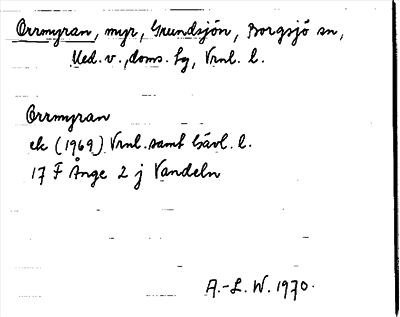 Orrmyran, myr, Grundsjön, Borgsjö sn,
Med. v., doms. hg, Vrnl. l.
Orrmyran
ek (1969) Vrnl. samt Gävl. l.
17 F Ånge 2 j Vandeln
A.-L. W. 1970.